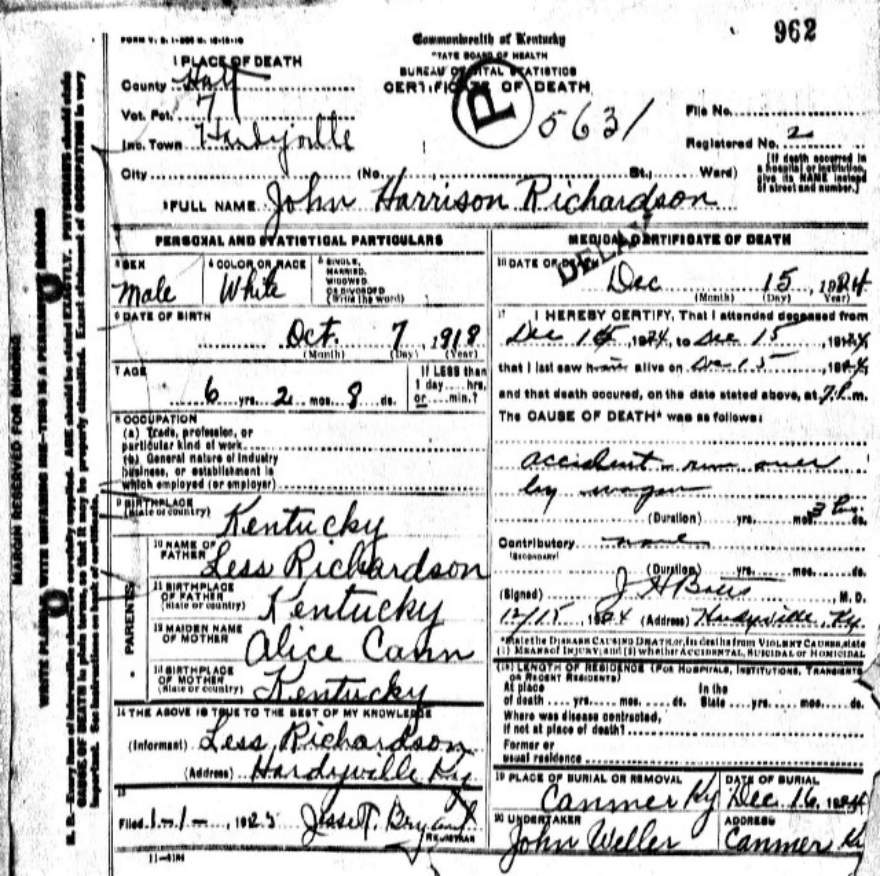 962
Commonwealth of Kentucky
STATE BOARD OF HEALTH
BUREAU OF VITAL STATISTICS
CERTIFICATE OF DEATH
P
5631
1 PLACE OF DEATH
County Hart
Vot. Pct. 7
Inc. Town Hardyville
City
(No. St.; Ward)
File No.
Registered No. 2
[If death occurred in
a hospital or institution,
give its NAME instead
of street and number.]
2 FULL NAME John Harrison Richardson
PERSONAL AND STATISTICAL PARTICULARS
3 SEX
Male
4 COLOR OR RACE
White
5 SINGLE,
MARRIED,
WIDOWED,
OR DIVORCED
(Write the word)
6 DATE OF BIRTH
Oct. 7, 1918
(Month) (Day) (Year)
7 AGE
6 yrs. 2 mos. 8 ds.
If LESS than
1 day.....hrs.
or.....min.?
8 OCCUPATION
(a) Trade, profession, or
particular kind of work
(b) General nature of industry
business, or establishment in
which employed (or employer)
9 BIRTHPLACE
(State or country) Kentucky
PARENTS
10 NAME OF
FATHER Less Richardson
11 BIRTHPLACE
OF FATHER
(State or country) Kentucky
12 MAIDEN NAME
OF MOTHER Alice Cann
13 BIRTHPLACE
OF MOTHER
(State or country) Kentucky
14 THE ABOVE IS TRUE TO THE BEST OF MY KNOWLEDGE
(Informant) Less Richardson
(Address) Hardyville Ky
15
Filed 1-1-, 1925 Jesse T. Bryant
REGISTRAR
11-4184
MEDICAL CERTIFICATE OF DEATH
DELAY
16 DATE OF DEATH
Dec 15, 1924
(Month) (Day) (Year)
17 I HEREBY CERTIFY, That I attended deceased from
Dec 15, 1924, to Dec 15, 1924,
that I last saw him alive on Dec 15, 1924,
and that death occured, on the date stated above, at 7 P.m.
The CAUSE OF DEATH* was as follows:
accident - run over
by wagon
(Duration) yrs. mos. ds.
Contributory none
(SECONDARY)
(Duration) yrs. mos. ds.
(Signed) M. D.
12/15 1924 (Address) Hardyville, Ky.
*State the DISEASE CAUSING DEATH, or, in deaths from VIOLENT CAUSES, state
(1) MEANS of INJURY; and (2) whether ACCIDENTAL, SUICIDAL or HOMICIDAL
(18) LENGTH OF RESIDENCE (FOR HOSPITALS, INSTITUTIONS, TRANSIENTS
OR RECENT RESIDENTS)
At place In the
of death yrs. mos. ds. State yrs. mos. ds.
Where was disease contracted,
if not at place of death?
Former or
usual residence
19 PLACE OF BURIAL OR REMOVAL
Canmer Ky
DATE OF BURIAL
Dec. 16, 1924
20 UNDERTAKER
John Weller
ADDRESS
Canmer K
MARGIN RESERVED FOR BINDING